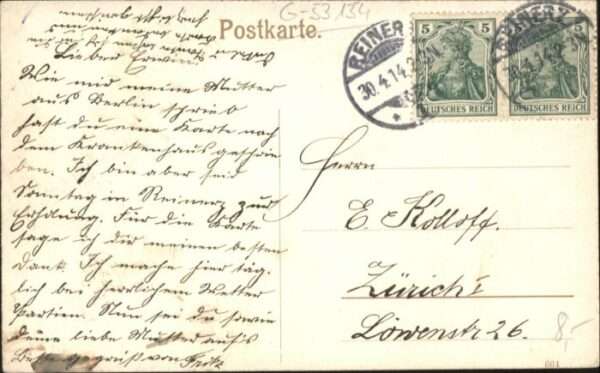 G-53,134
Postkarte.
REINERZ
30.4.14.
5
5
DEUTSCHES REICH
DEUTSCHES REICH
Lieber Erwin
Wie mir meine Mutter
aus Berlin schrieb
hast du eine Karte nach
dem Krankenhaus geschrie
ben. Ich bin aber seid
Sonntag in Reinerz zur
Erholung. Für die Karte
sage ich dir meinen besten
Dank. Ich mache hier täg-
lich bei herrlichem Wetter
Partien. Nun sei du sowie
deine liebe Mutter aufs
Beste gegrüß von Fritz
Herrn
E. Kolloff.
Zürich I
Löwenstr 26.
8,-
001